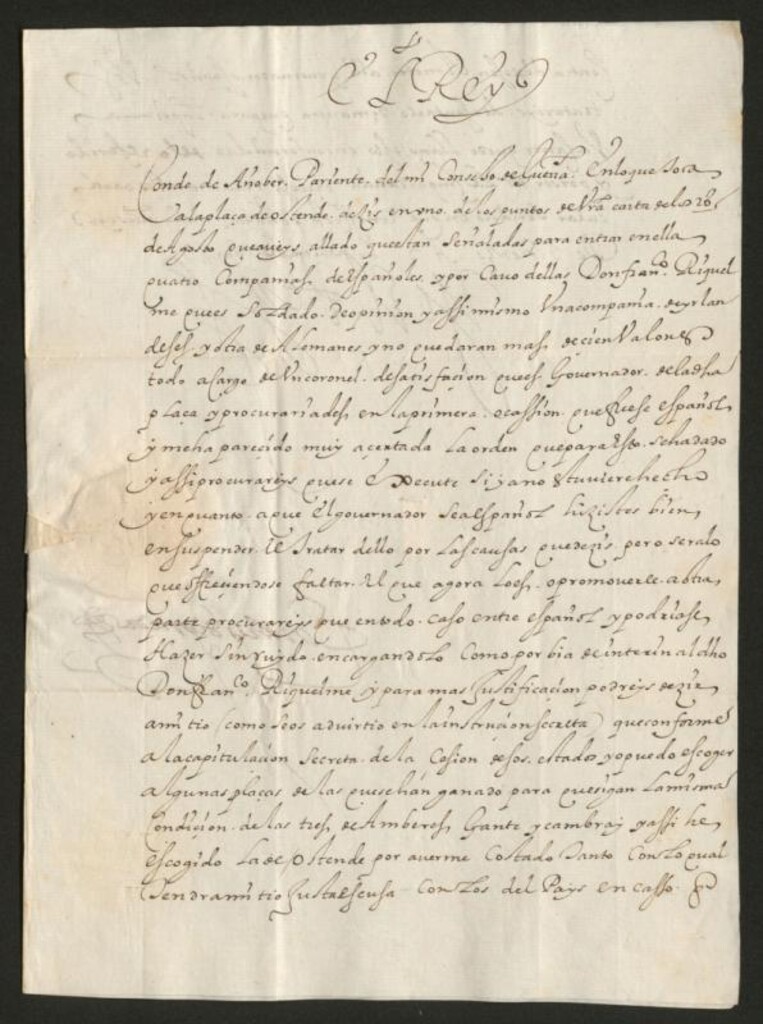 El Rey
Conde de Añober. Pariente. del mi Consejo de Guerra. En loque toca
ala plaça de ostende. dezis en vno. de los puntos de vrã carta de los 28
de Agosto que aueys allado que estan señaladas para entrar en ella
quatro Companias de españoles. y por Cauo dellas Don franco. Riquel
me que es soldado. de opinion y assi mismo Vna compania. de yrlan
deses y otra de Alemanes y no quedaran mas. de cien Valones
todo a Cargo de Vn coronel. de satisfacion que es. Governador. de la dha
plaça y procurariades en la primera. ocassion. que fuese español
y me ha parecido muy acertada la orden que para esto. se ha dado
y assi procurareys que se execute si ya no estuviere hecho
y en quanto. a que El gouernador sea español hizistes bien,
en suspender. el tratar dello por las causas que dezis. pero sera lo
que offreçiendose faltar. el que agora lo es. o promouerle. a otra
parte procurareys que en todo. caso entre español y podriase
Hazer sin ruydo. encargandolo como por bia de interin al dho
Don franco. Riquelme y para mas Justificacion podreys dezir
a mi tio (como se os aduirtio en la instrucion secreta) que conforme
a la capitulacion secreta. de la Cesion desos. estados yo puedo escoger
algunas plaças de las que se han ganado para que sigan la misma
Condiçion. de las tres de Amberes, Gante y cambray y assi he
escogido la de ostende por auerme Costado tanto Con lo qual
tendra mi tio Justa escusa Con los del Pays en casso. q